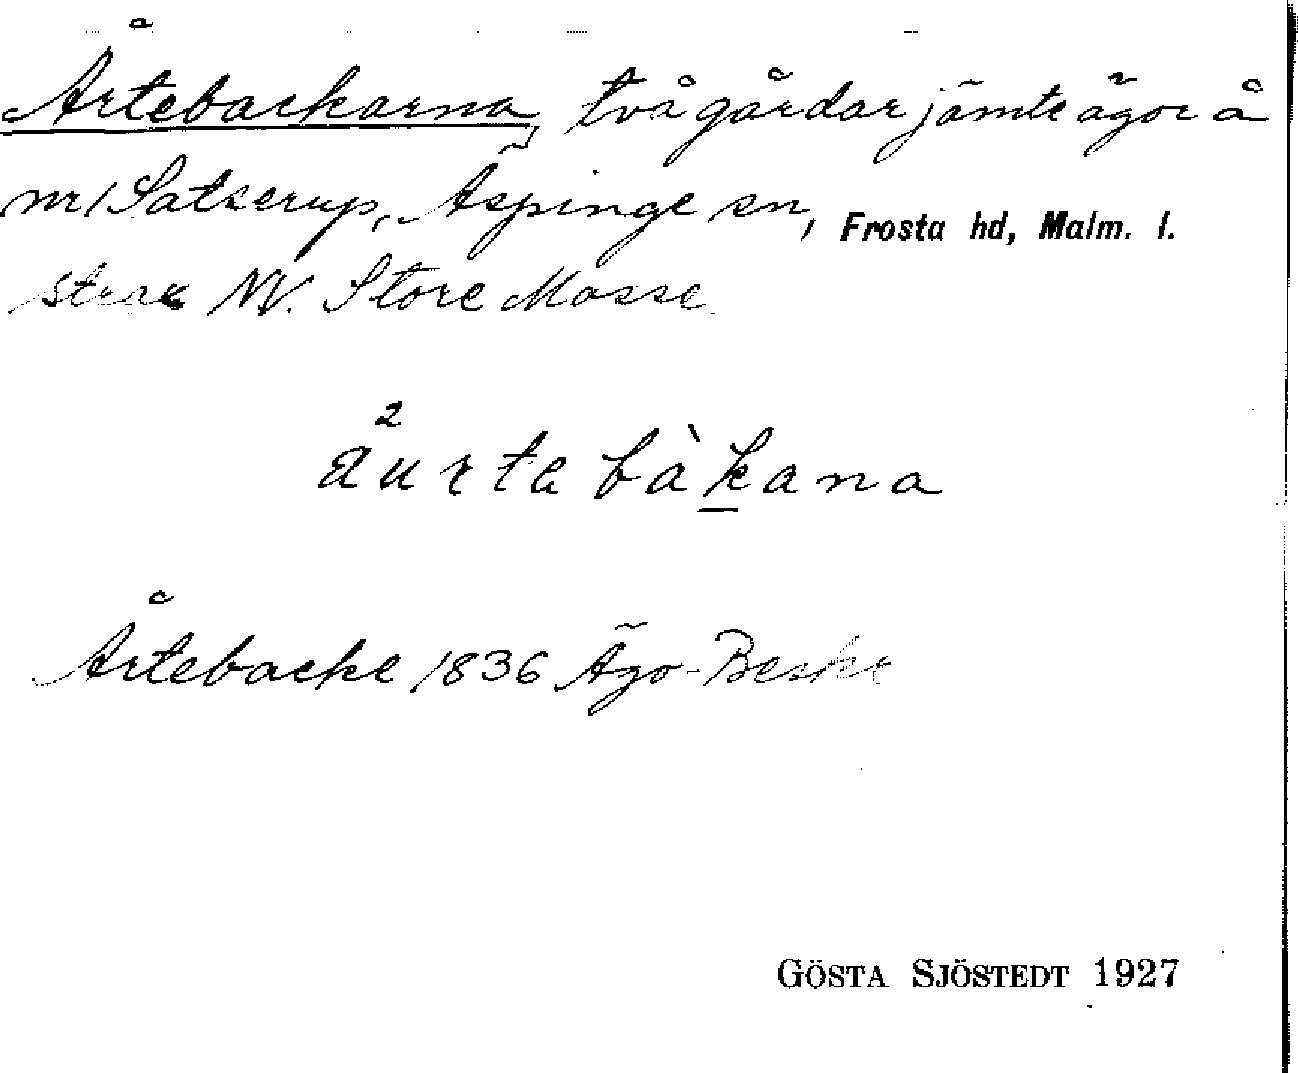 Årtebackarna, två gårdar jämte ägor å
nr 1 Satserup, Äspinge sn, Frosta hd, Malm. l.
strax NV. Store Mosse.
åurtabàkana
Årtebacke 1836 Ägo-Beskr
GÖSTA SJÖSTEDT 1927